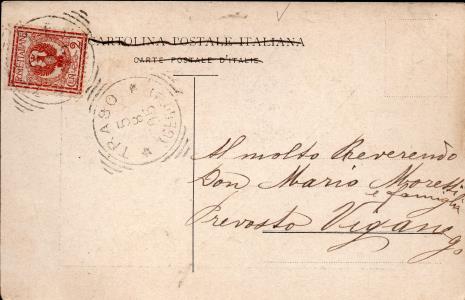 CARTOLINA POSTALE ITALIANA
CARTE POSTALE D'ITALIE
TRASO
5
8
05
Al molto Reverendo
Don Mario Moresi
e famiglia
Prevosto Viganego